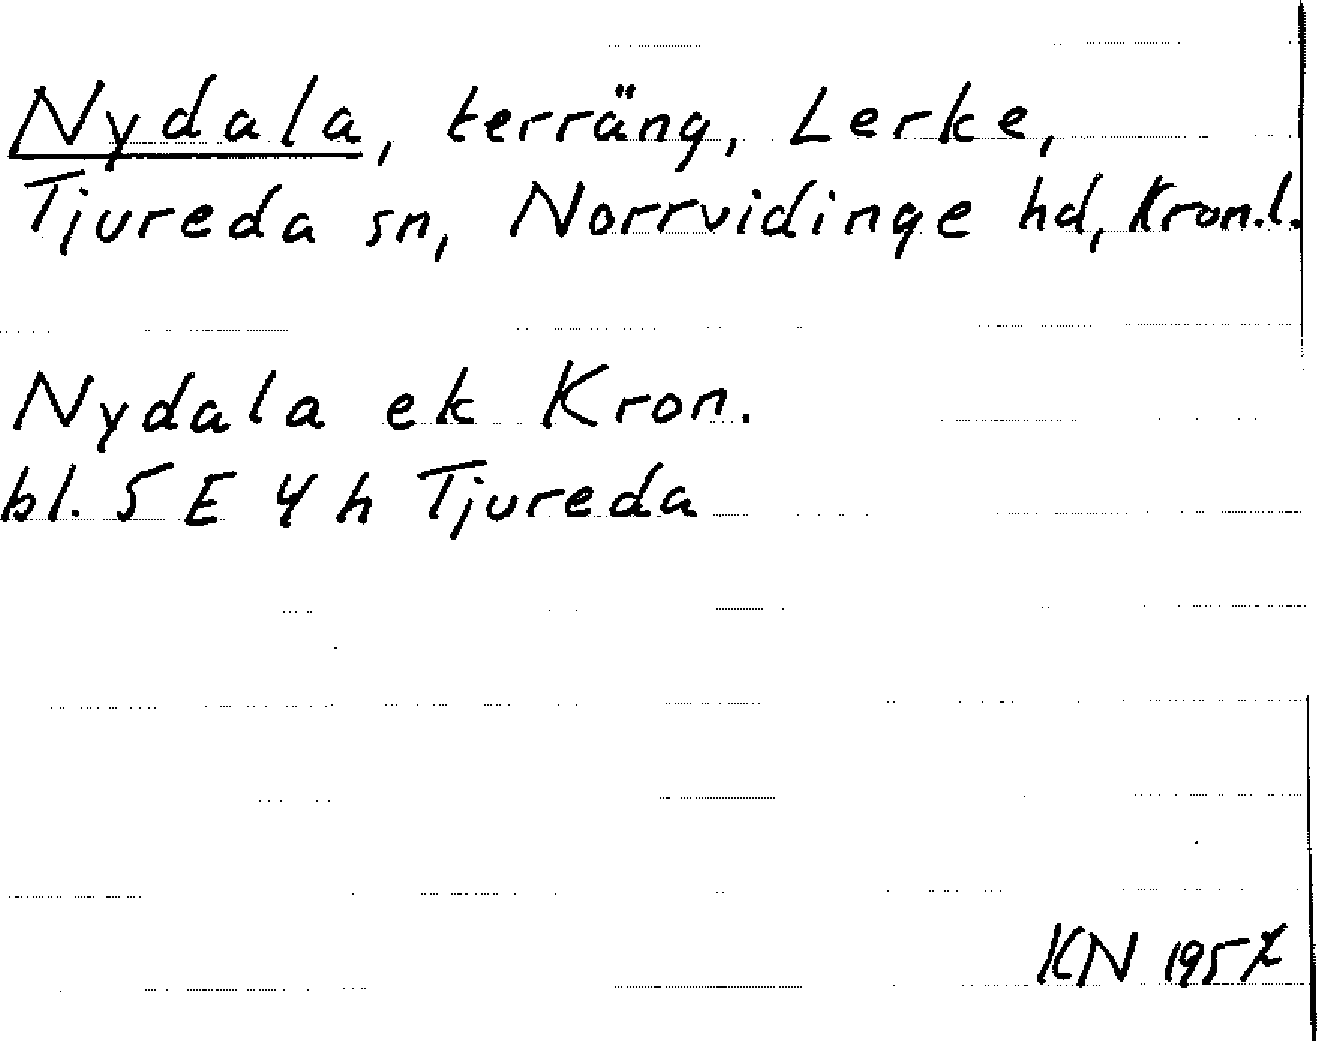 Nydala, terräng, Lerke,
Tjureda sn, Norrvidinge hd, Kron.l.
Nydala ek Kron.
bl. 5 E 4 h Tjureda
KN 1957